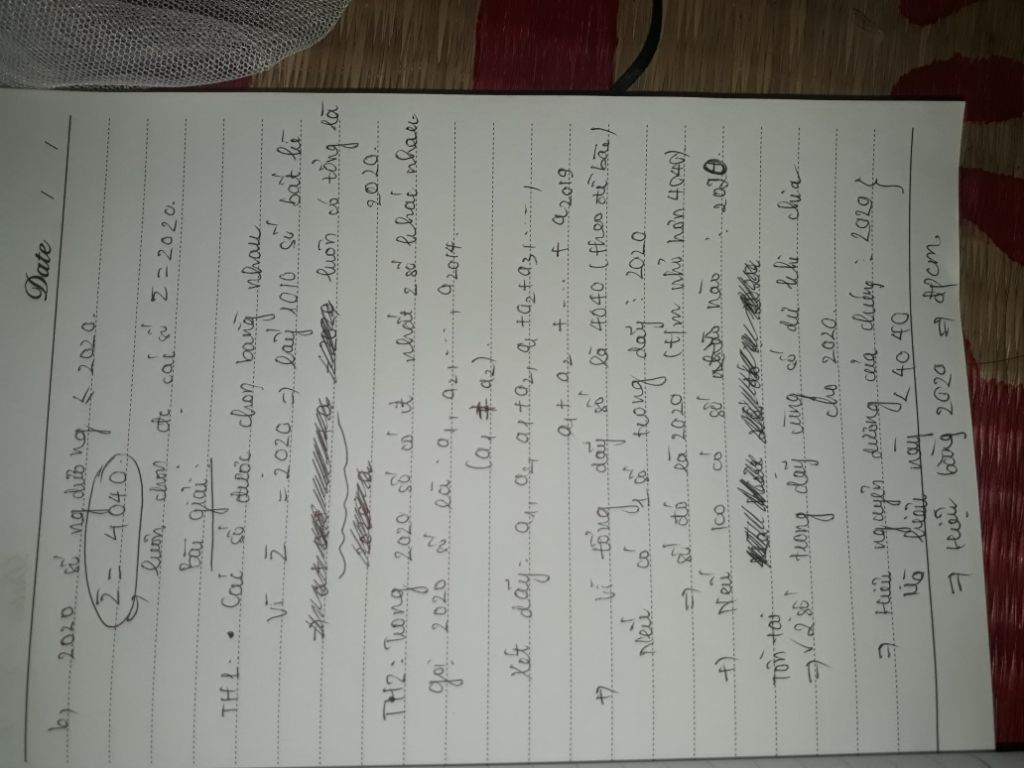 Date / /
b, 2020 số ng dương ≤ 2020.
Σ = 4040
luôn chọn đc các số Σ = 2020.
Bài giải:
TH1: • Các số được chọn bằng nhau
Vì Σ = 2020 ⇒ lấy 1010 số bất kì
luôn có tổng là
2020
TH2: Trong 2020 số có ít nhất 2 số khác nhau
gọi 2020 số là: a1, a2, ..., a2014.
(a1 ≠ a2)
Xét dãy: a1, a2, a1 + a2, a1 + a2 + a3, ...,
a1 + a2 + ... + a2019
+) Vì tổng dãy số là 4040 (theo đề bài)
Nếu có 1 số trong dãy ⋮ 2020
⇒ số đó là 2020 (t/m nhỏ hơn 4040)
+) Nếu ko có số nào ⋮ 2020
Tồn tại
⇒ 2 số trong dãy cùng số dư khi chia
cho 2020
⇒ Hiệu nguyên dương của chúng ⋮ 2020 }
Mà hiệu này < 4040
⇒ Hiệu bằng 2020 ⇒ đpcm.